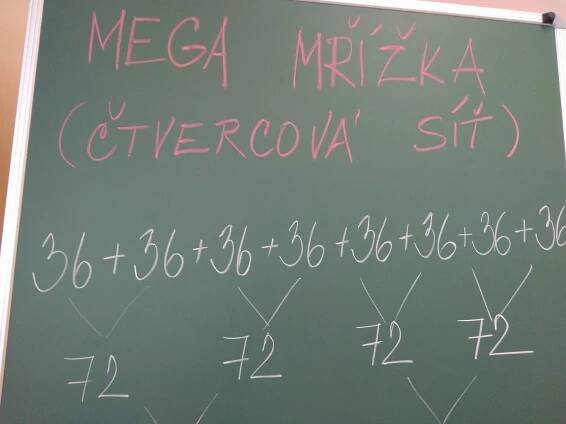 MEGA MŘÍŽKA
(ČTVERCOVÁ SÍŤ)
36+36+36+36+36+36+36+36
72 72 72 72